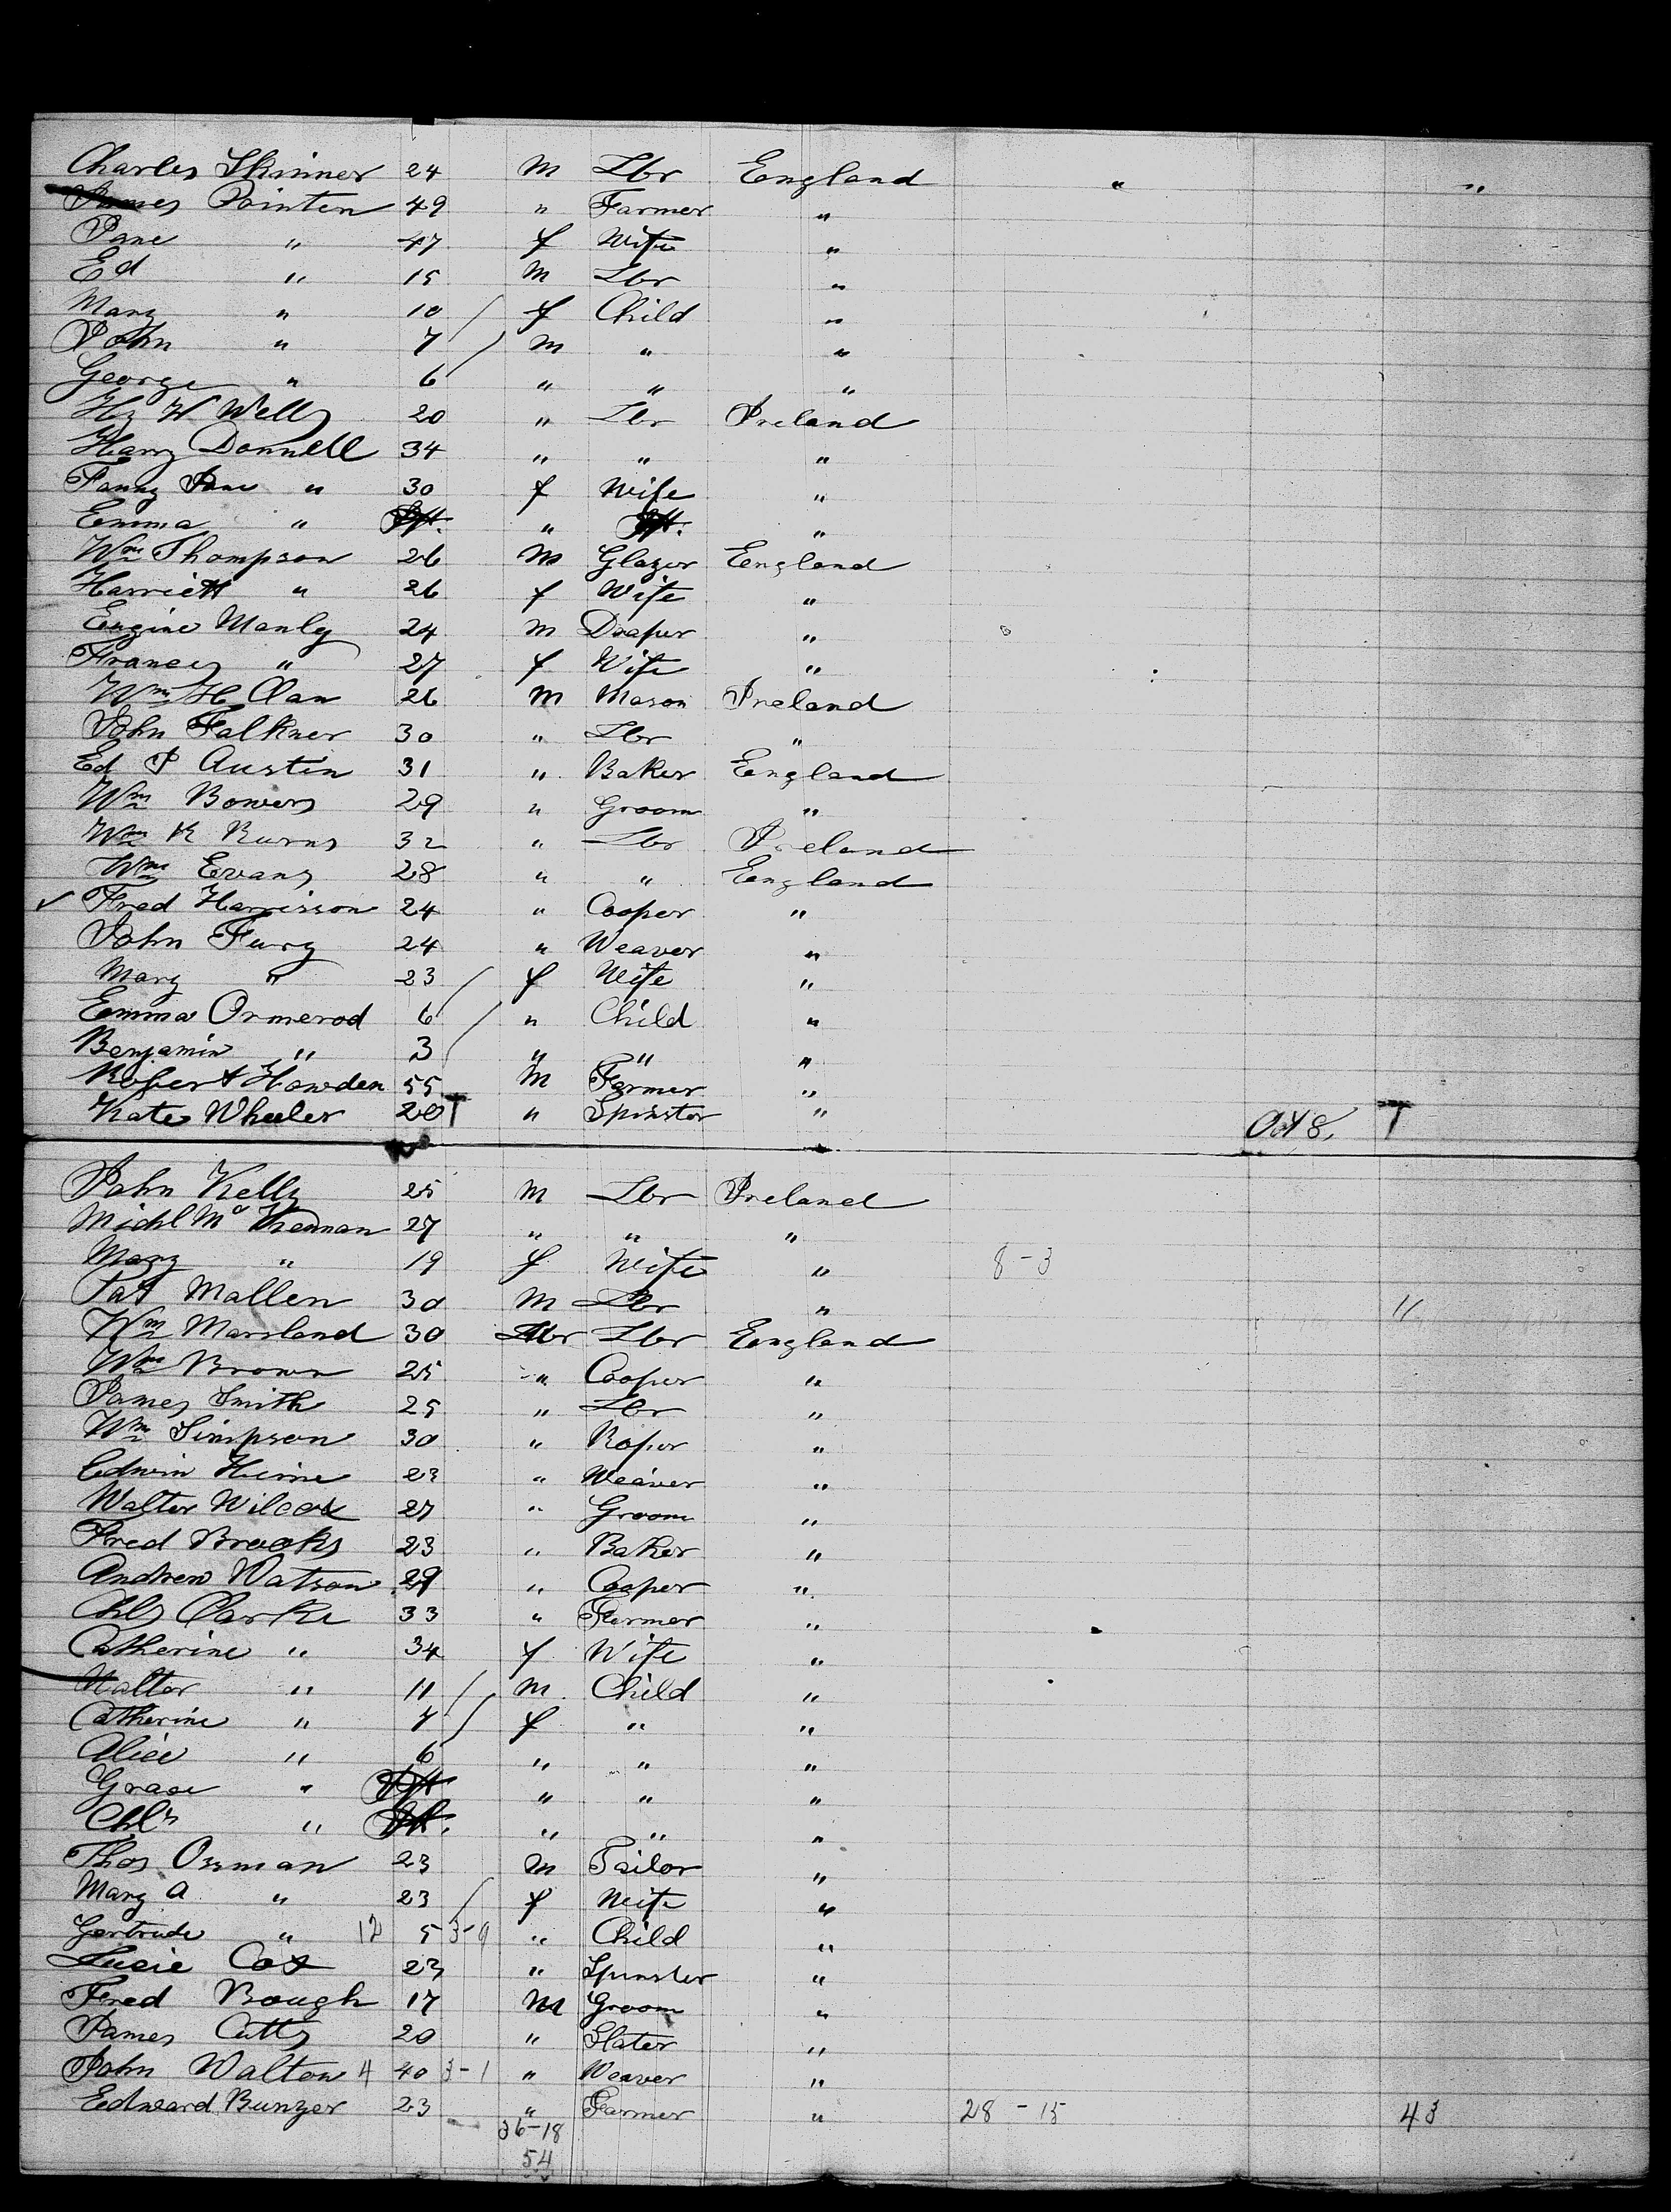 Charles Skinner 24 M Lbr England " "
James Pointen 49 " Farmer "
Jane " 47 f Wife "
Ed " 15 M Lbr "
Mary " 10 f Child "
John " 7 M " "
George " 6 " " "
Hy W Wells 20 " Lbr Ireland
Harry Donnell 34 " " "
Fanny Jane " 30 f Wife "
Emma " Ift. " Ift. "
Wm Thompson 26 M Glazer England
Harriett " 26 f Wife "
Eugine Manly 24 M Draper "
Frances " 27 f Wife "
Wm H Clan 26 M Mason Ireland
John Falkner 30 " Lbr "
Ed J Austin 31 " Baker England
Wm Bowers 29 " Groom "
Wm K Burns 32 " Lbr Ireland
Wm Evans 28 " " England
Fred Harrison 24 " Cooper "
John Fury 24 " Weaver "
Mary " 23 f Wife "
Emma Ormerod 6 " Child "
Benjamin " 3 " " "
Robert Howden 55 M Farmer "
Kate Wheeler 20 T " Spinster " T
John Kelly 25 M Lbr Ireland
Michl Mc Kennan 27 " " "
Mary " 19 f Wife " 8-3
Pat Mallen 30 M Lbr " "
Wm Marsland 30 Lbr England
Wm Brown 25 " Cooper "
James Smith 25 " Lbr "
Wm Simpson 30 " Roper "
Edwin Hirne 23 " Weaver "
Walter Wilcox 27 " Groom "
Fred Brooks 23 " Baker "
Andrew Watson 29 " Cooper "
Chls Clarke 33 " Farmer "
Catherine " 34 f Wife "
Walter " 11 M Child "
Catherine " 7 f " "
Alice " 6 " " "
Grace " Ift " " "
Chls " Ift. " " "
Thos Osman 23 M Tailor "
Mary A " 23 f Wife "
Gertrude " 12 5 3-9 " Child "
Lucie Cox 23 " Spinster "
Fred Bough 17 M Groom "
James Cutts 20 " Slater "
John Walton 4 40 3-1 " Weaver "
Edward Bunzer 23 " Farmer " 28-15 43
36-18
54